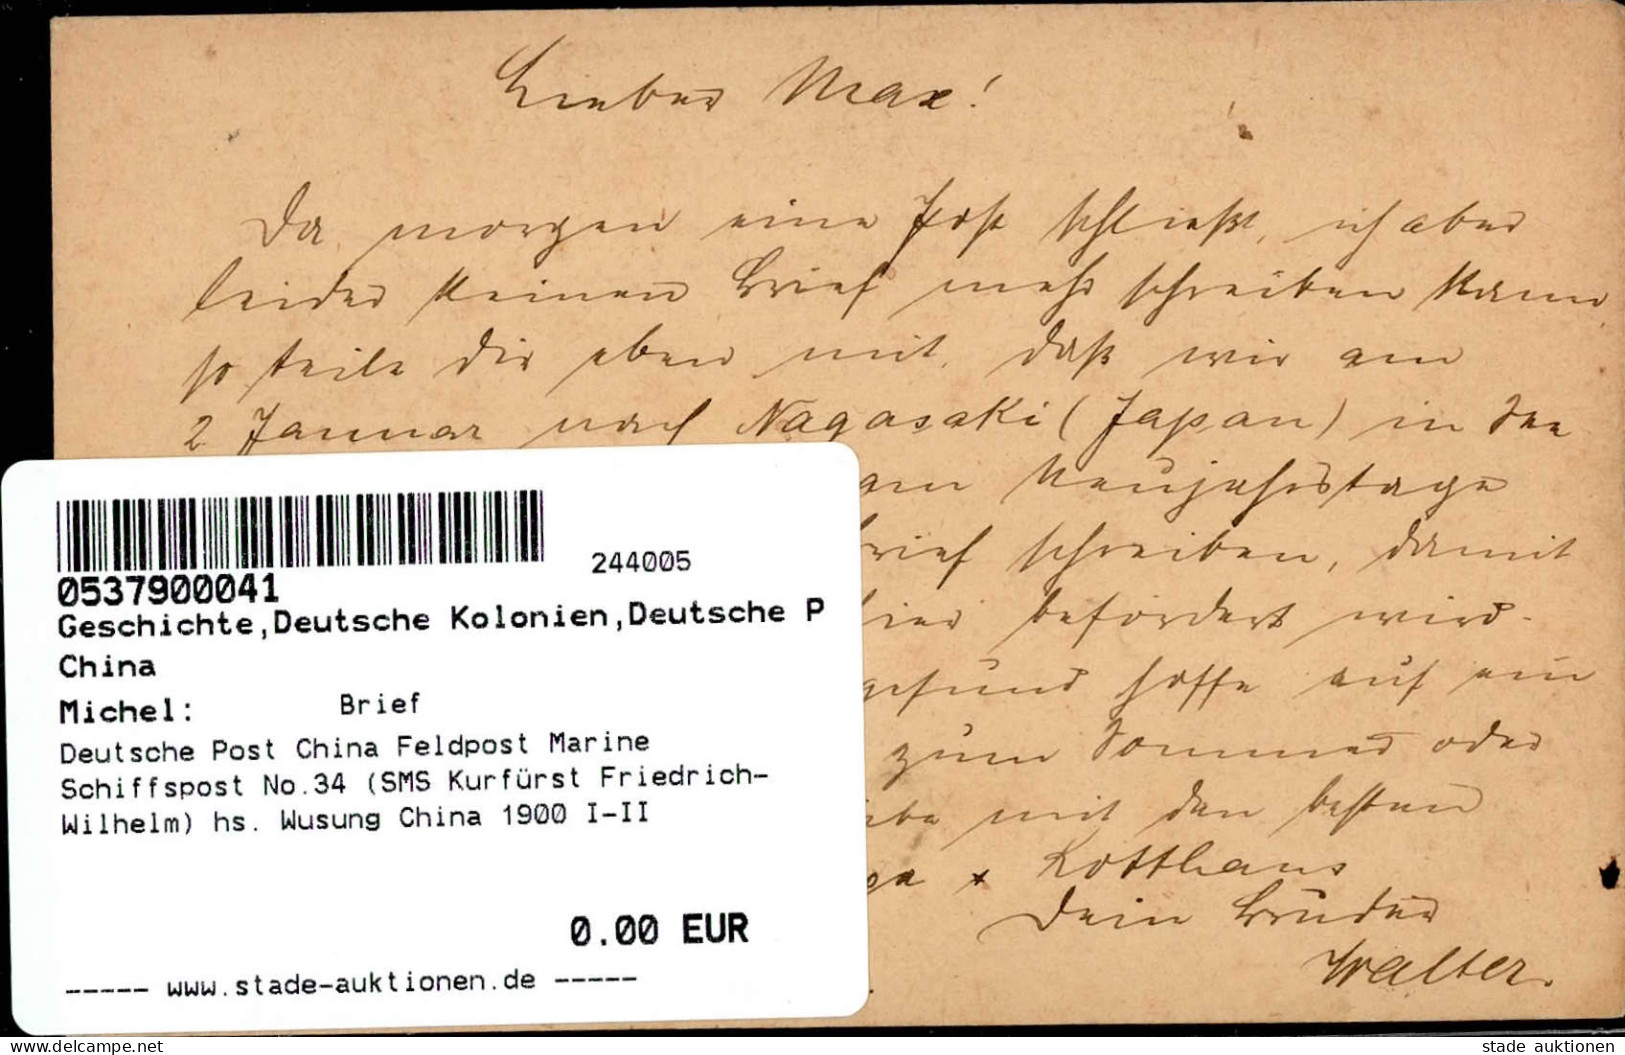 Lieber Max!
Da morgen eine Post schließt, ich aber
leider keinen Brief mehr schreiben kann,
so teile Dir eben mit, daß wir am
2 Januar nach Nagasaki (Japan) in See
am Neujahrstage
rief schreiben, damit
hier befördert wird.
gesund hoffe auf ein
zum Sommer oder
mit den besten
Kotthaus
Dein Bruder
Walter.
244005
0537900041
Geschichte,Deutsche Kolonien,Deutsche P
China
Michel: Brief
Deutsche Post China Feldpost Marine
Schiffspost No.34 (SMS Kurfürst Friedrich-
Wilhelm) hs. Wusung China 1900 I-II
0.00 EUR
----- www.stade-auktionen.de -----
www.delcampe.net
stade auktionen